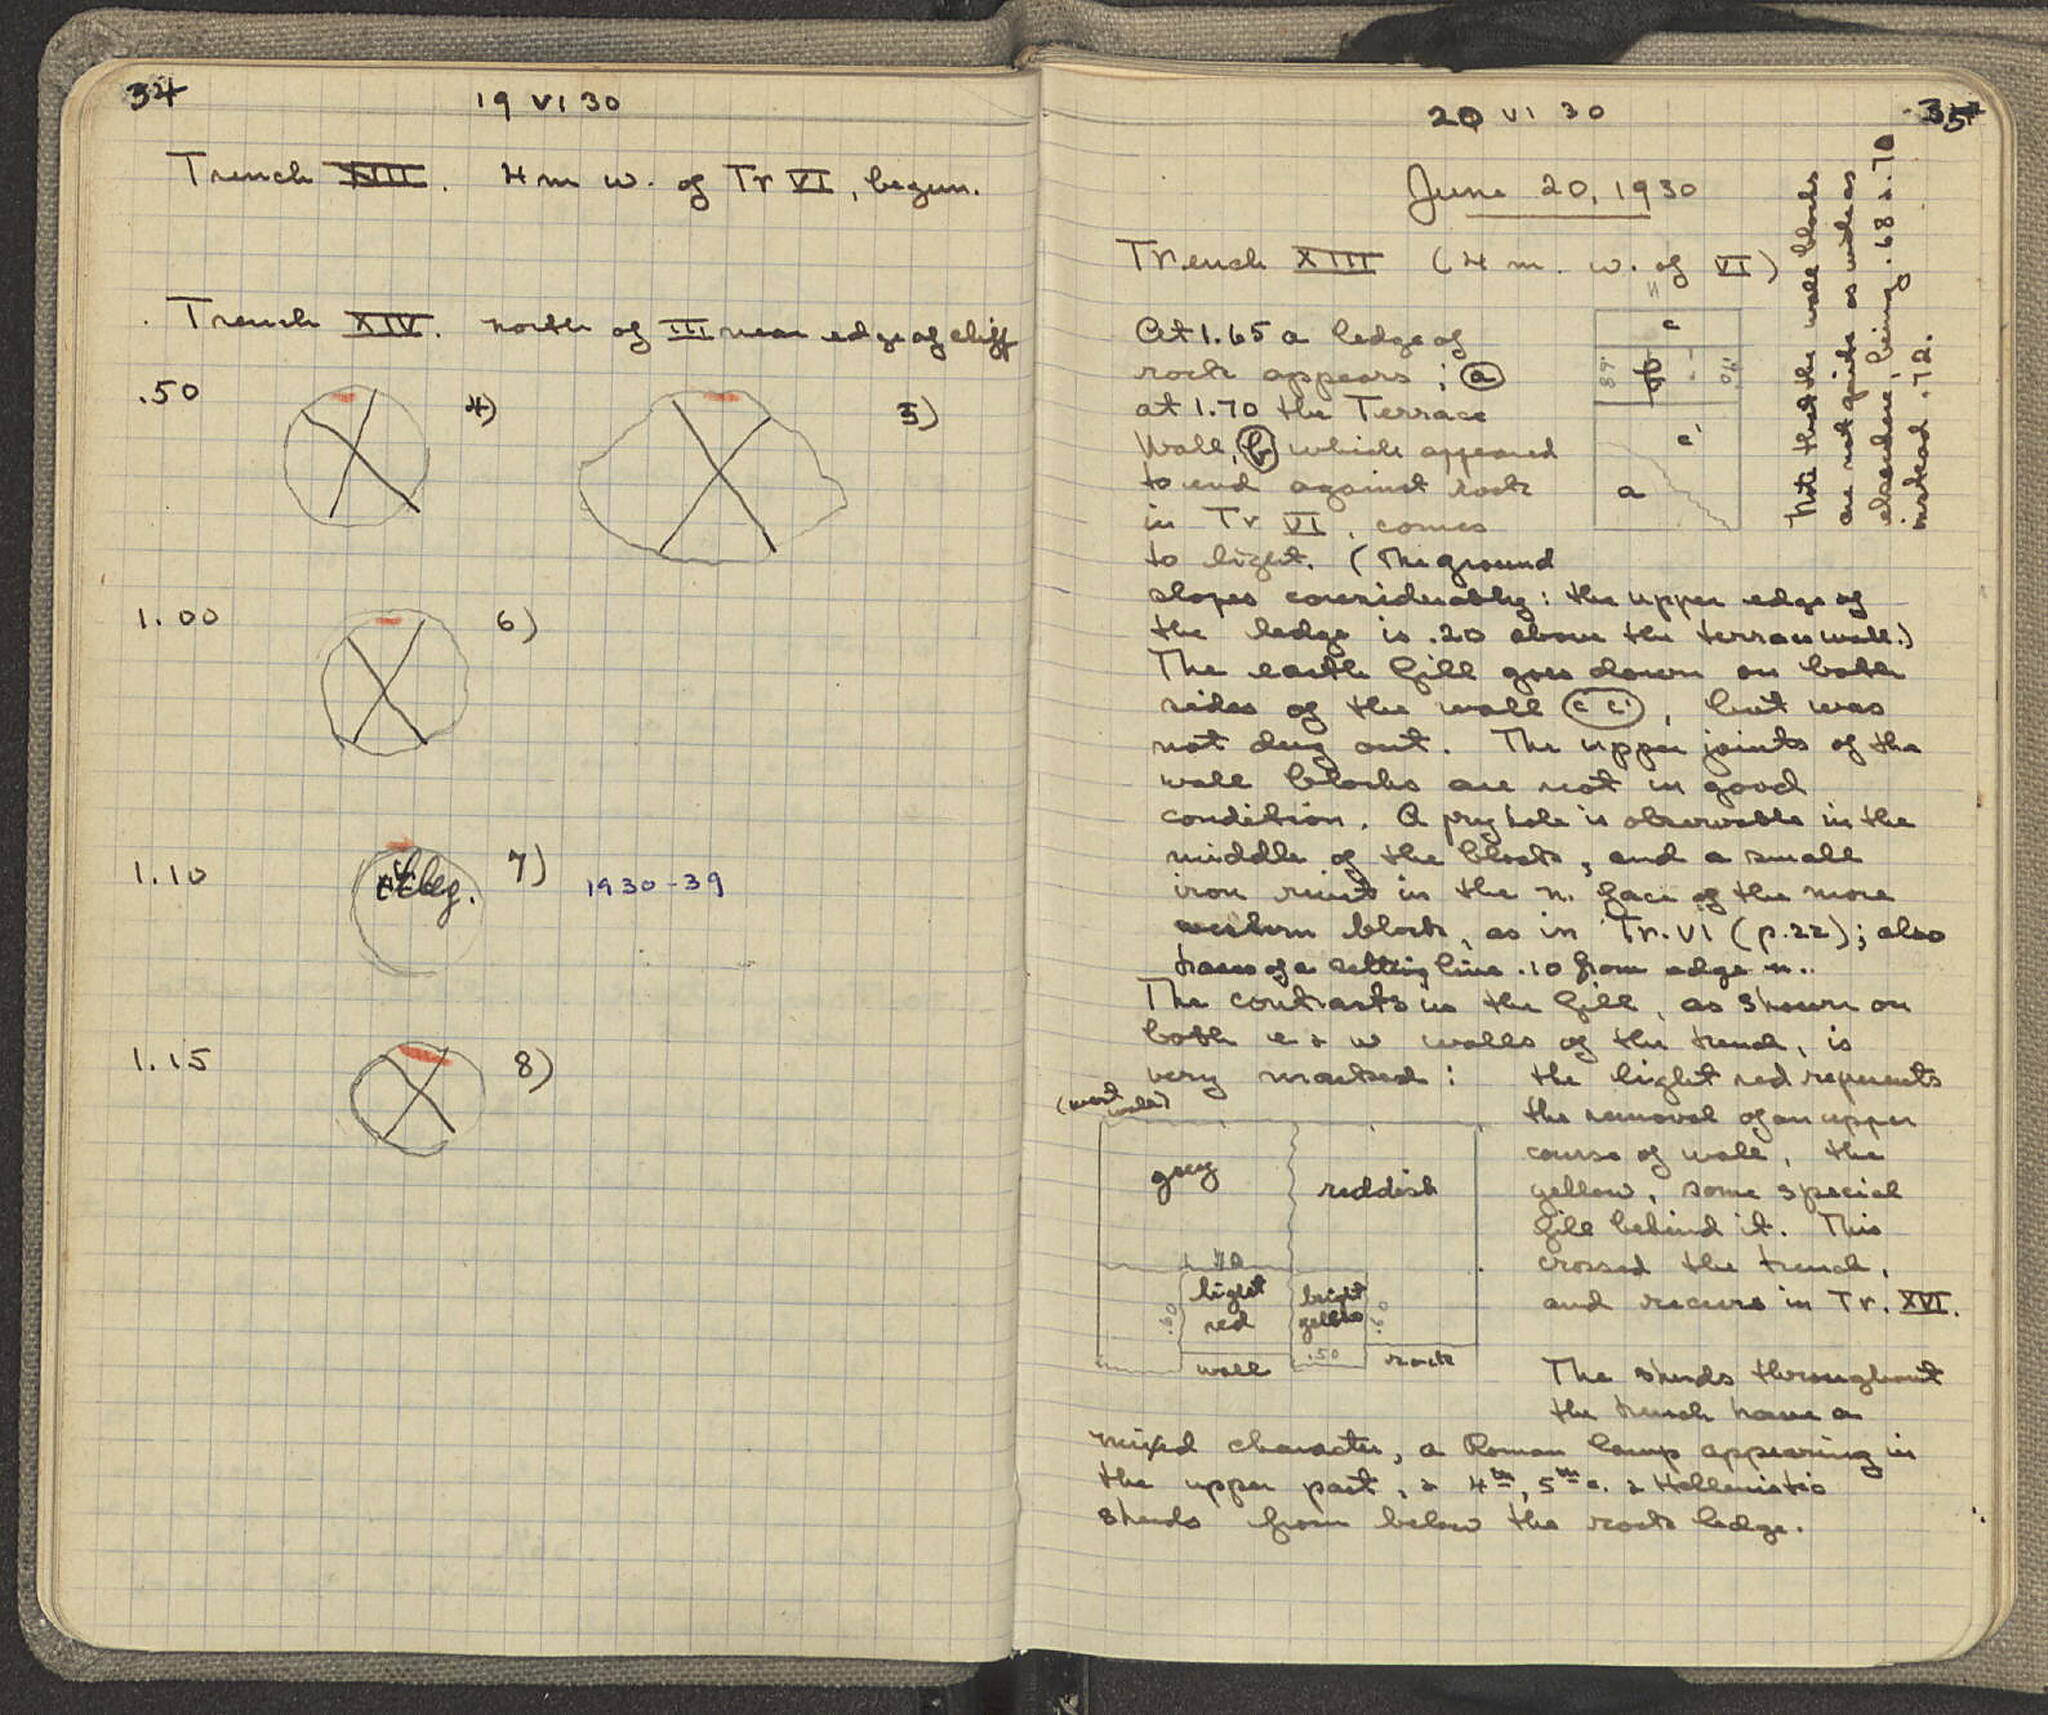 34
19 VI 30
Trench XIII. 4 m w. of Tr VI, begun.
Trench XIV. north of III near edge of cliff
.50 4) 5)
1.00 6)
1.10 7) 1930-39
1.15 8)
20 VI 30
35
June 20, 1930
Trench XIII (4 m. w. of VI)
At 1.65 a ledge of
rock appears; a
at 1.70 the Terrace
Wall, b which appeared
to end against rock
in Tr VI, comes
to light. (The ground
slopes considerably: the upper edge of
the ledge is .20 above the terrace wall.)
The earth fill goes down on both
sides of the wall c c', but was
not dug out. The upper joints of the
wall blocks are not in good
condition. A pry hole is observable in the
middle of the block, and a small
iron rivet in the n. face of the more
western block, as in Tr. VI (p. 22); also
traces of a setting line .10 from edge n..
The contrasts in the fill, as shown on
both e & w walls of the trench, is
very marked:
the light red repesents
the removal of an upper
course of wall, the
yellow, some special
fill behind it. This
crossed the trench,
and recurs in Tr. XVI.
The sherds throughout
the trench have a
mixed character, a Roman lamp appearing in
the upper part, & 4th, 5th c. & Hellenistic
sherds from below the rock ledge.
N
c
.68
.70
c'
a
Note that the wall blocks
are not quite as wide as
elsewhere, being .68 & .70
instead .72.
(west wall)
grey
reddish
light red
bright yellow
.60
wall
.50
rock